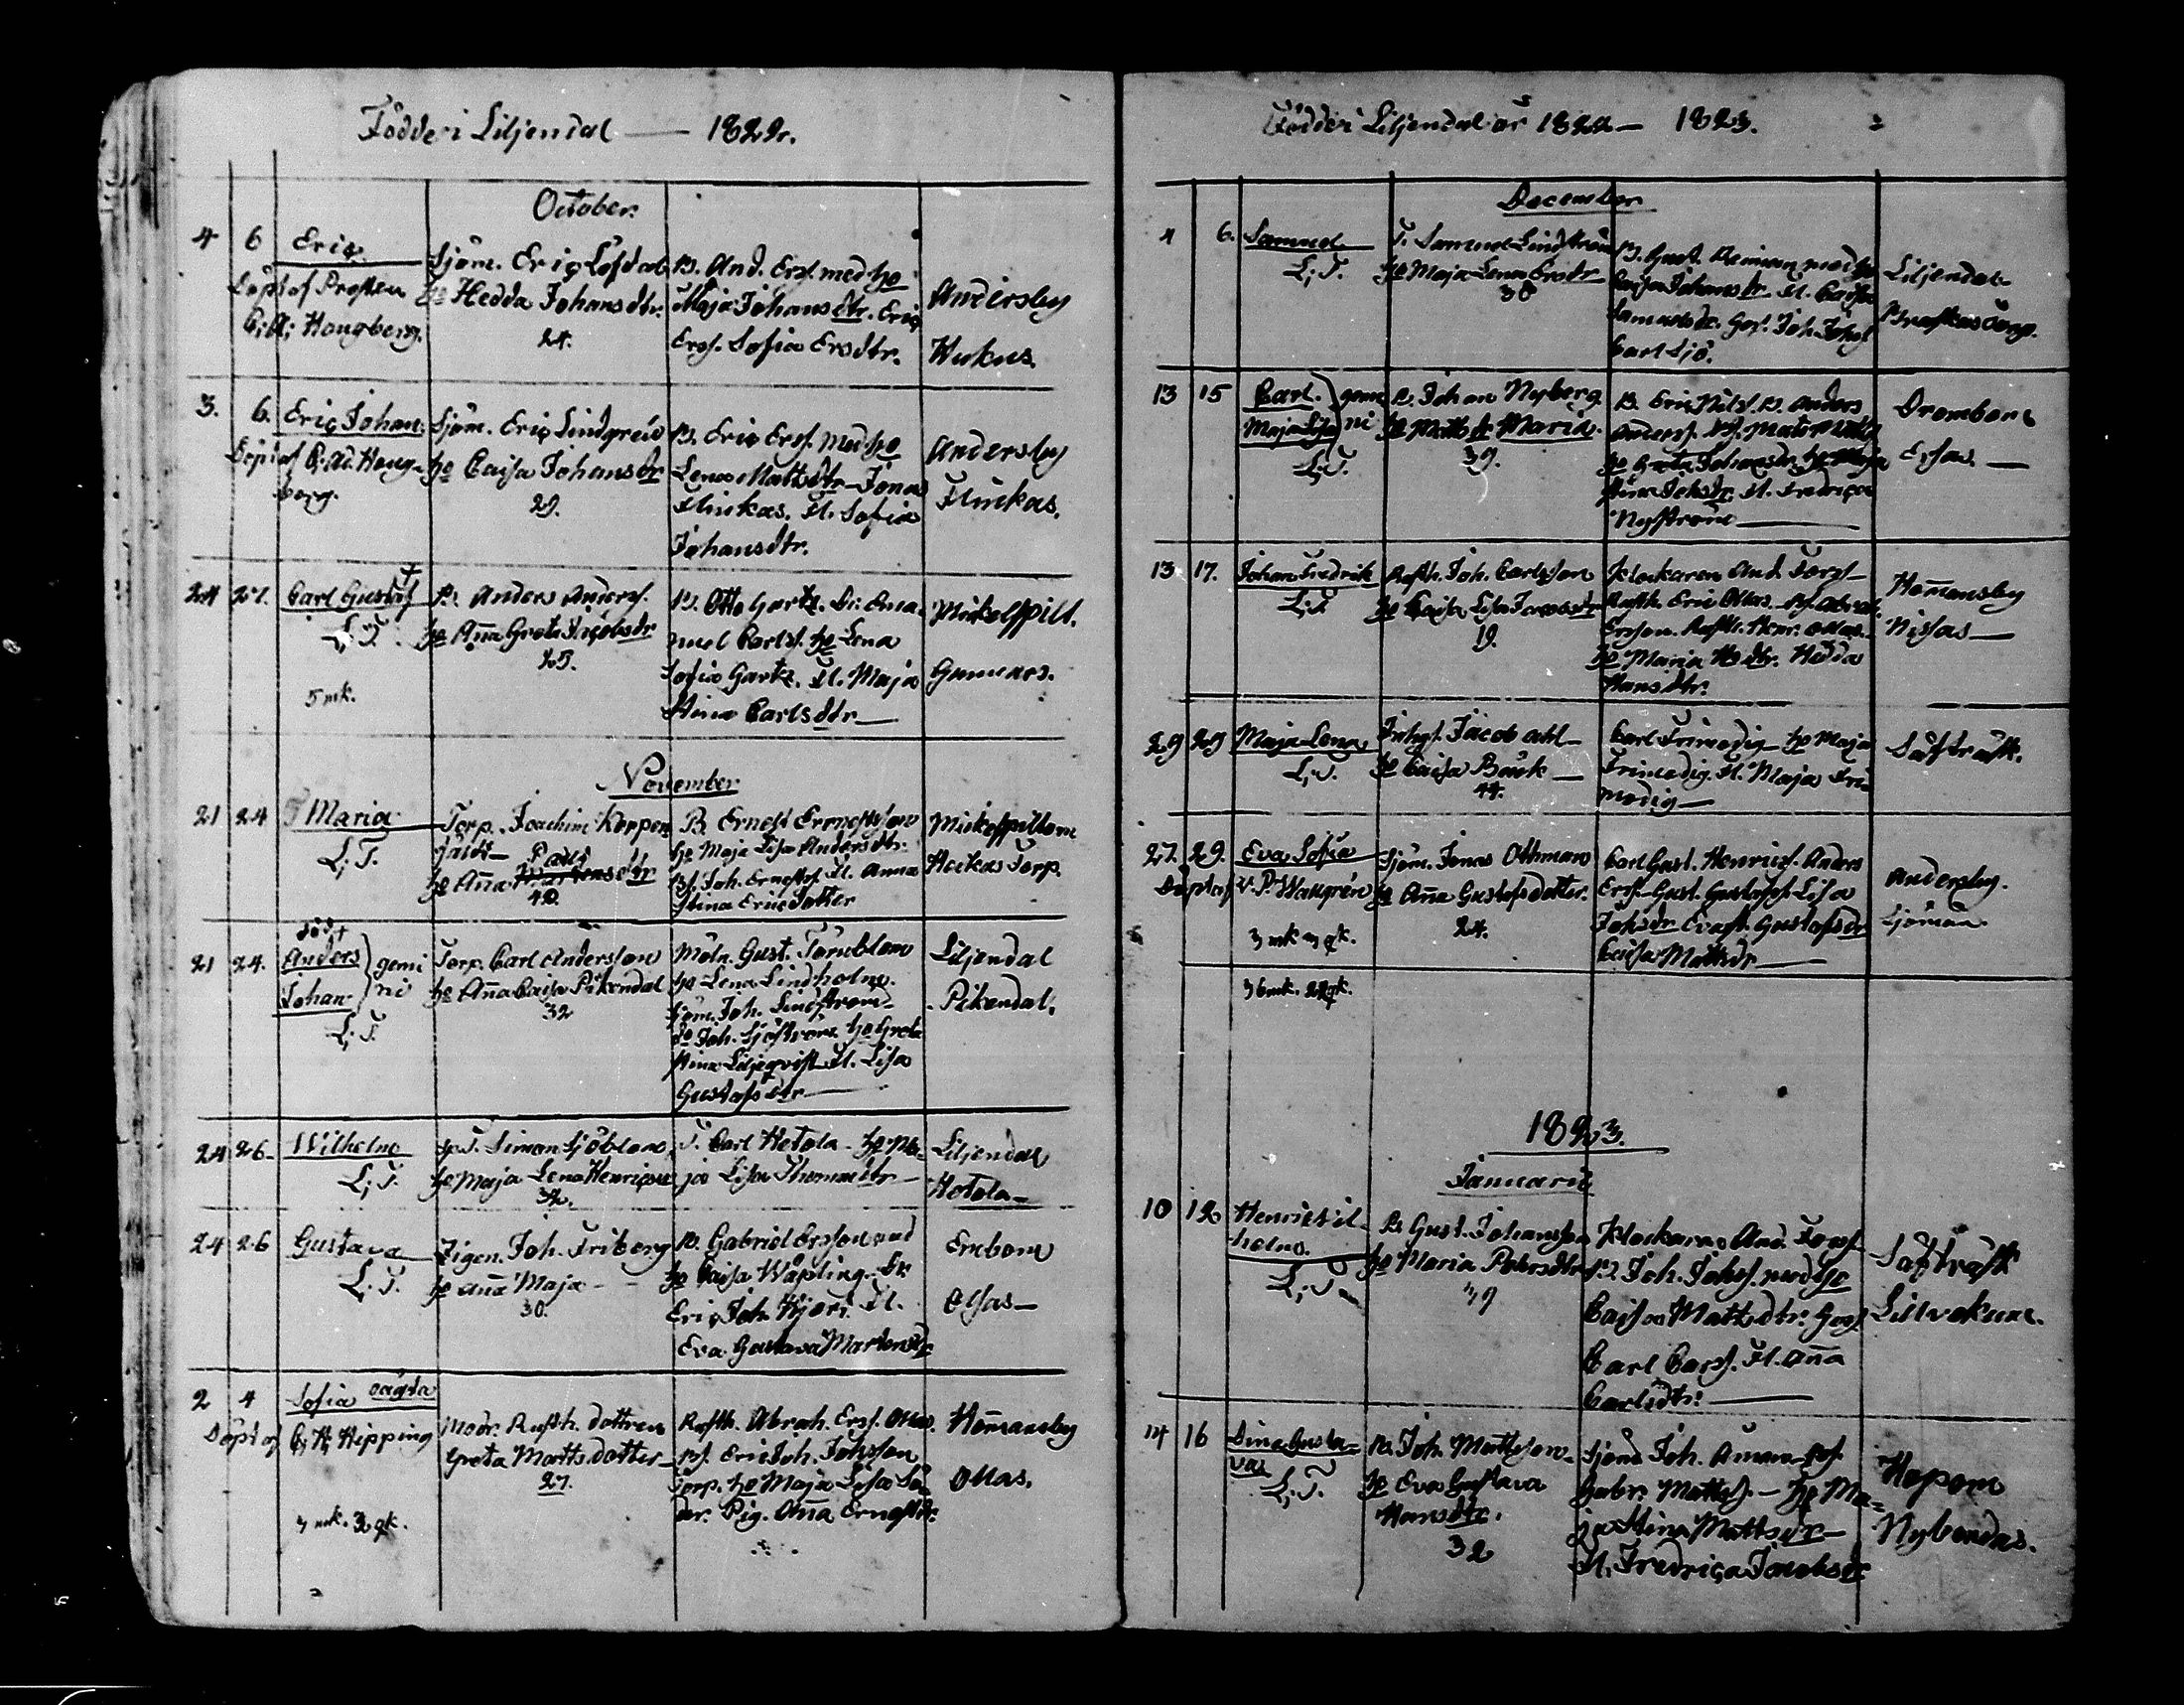 Födde i Liljendal — 1822.
October.
4 6 Eriç
Döpt af Prosten
C: A: Hougberg.
Sjöm. Eriç Löfdal
ho Hedda Johansdtr.
24.
B. And. Ersf. med ho
Maja Johansdtr. Eriç
Ersf. Sofia Ersdtr.
Andersby
Hukus.
3. 6. Eriç Johan
Döpt af C. Ad. Houg-
berg.
Sjöm. Eriç Lindgren
ho Caisa Johansdtr
29.
B. Eriç Ersf. med ho
Lena Mattsdtr. Jonas
Flinkas. Fl. Sofia
Johansdtr.
Andersby
Flinkas.
24 27. Carl Gustaf +
L; T.
5 mk.
B. Anders Andersf.
ho Aña Greta Jaçobsdtr
25.
B. Otto Gartz. Dr. Ema-
nuel Carlsf. ho Lena
Sofia Gartz. Fl. Maja
Stina Carlsdtr —
Mickelspilt.
Gunnars.
November
21 24 Maria
L; T.
Torp. Joachim Korpon
Pauls
ho Aña Martensdtr
42.
B. Ernest Ernestsson
ho Maja Lisa Andersdtr.
Bf. Joh. Ernestsf. Fl. Anna
Stina Ericsdotter
Mickelspiltom
Heikas Torp.
död +
21 24. Anders
Johan
gemi
ni
L; T.
Torp. Carl Andersson
ho Aña Caisa Pikendal
32
Möln. Gust. Törnblom
ho Lena Lindholm.
Sjöm. Joh. Lindström
do Joh. Sjöström ho Greta
Stina Liljeqvist Fl. Lisa
Gustafsdtr —
Liljendal
Pikendal.
24 26 Wilhelm
L; T.
Sp. T. Simon Sjöblom
ho Maja Lena Henricsdr
32.
T. Carl Hetola ho Ma-
ja Lisa Thomasdtr —
Liljendal
Hetola —
24 26 Gustava
L. T.
Zigen. Joh. Friberg
ho Aña Maja —
30.
B. Gabriel Ersson med
ho Caisa Wäpling. Dr.
Eriç Joh. Hjort. Fl.
Eva Gustava Martensdtr
Embom
Olsas —
2 4 Sofia oägta
Döpt af C; H; Hipping
3 mk. 3 qk.
Modr. Rusth. dottren
Greta Matts dotter —
27.
Rusth. Abrah. Ersf. Ottas.
Bf. Eric Joh. Johsson
Torp. ho Maja Lisa Sö-
der. Pig. Aña Ernestdtr.
Hom̃ansby
Ottas.
Födde i Liljendal år 1822 — 1823.
December
4 6. Samuel
L; T.
T. Samuel Lindström
ho Maja Lena Ersdtr
38
B. Gust. Reiman med ho
Caisa Johansdtr. Fl. Caisa
Samuelsdr. Gos. Joh. Johsf
Carl Sjö.
Liljendal
Braskas Torp.
13 15 Carl.
Maja Lisa
gemi
ni
L; T.
B. Johan Nyberg
ho Mattsdr Maria.
39.
B. Eric Nilsf. B. Anders
Andersf. Bf. Mats Mattsf
ho Greta Johansdtr ho Maja
Stina Johsdtr. Fl. Fredrica
Nyström —
Drombom
Ersas. —
13 17. Johan Fredrik
L; T.
Rusth. Joh. Carlsson
ho Caisa Lisa Jacobsdtr
19.
Klockaren And. Forsf.
Rusth. Eric Ottas. Bf. Abrah.
Ersson. Rusth. Henr. Ottas.
ho Maria Hsdtr. Hedda
Hansdtr.
Hom̃ansby
Nissas —
29 29 Maja Lena
L; T.
Inhys. Jacob Ahl —
ho Caisa Bäck —
44.
Carl Frimodig ho Maja
Frimodig. Fl. Maja Fri-
modig —
Säfträsk.
27. 29. Eva Sofia
Döpt af v. P. Wallgrén
3 mk 3 qk.
36 mk. 22 qk.
Sjöm. Jonas Othman
ho Aña Gustafsdotter.
24.
Carl Gust. Henricsf. Anders
Ersf. Gust. Gustafsf. Lisa
Johsdr Eva St. Gustafsdr
Caisa Mattsdr —
Andersby.
Sjöman
1823.
Januarii
10 12 Henric Vil-
helm.
L; T.
B. Gust. Johansson
ho Maria Petersdtr
39
Klockaren And. Forsf.
B. Joh. Johsf. med ho
Caisa Mattsdtr. Gos.
Carl Carsf. Fl. Aña
Carlsdtr. —
Säfträsk
Lillvekure.
14 16 Dina Gusta-
va
L; T.
B. Joh. Mattsson
ho Eva Gustava
Hansdtr.
32
Sjöm. Joh. Aman Bf.
Gabr. Mattsf. — ho Ma-
ja Stina Mattsdr —
Fl. Fredriça Jacobsdr
Hopom
Nybondas.